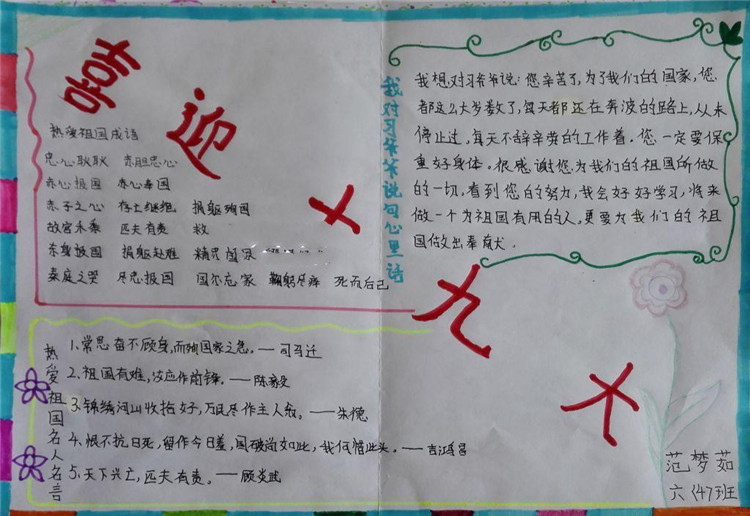 喜迎十九大
热爱祖国成语
忠心耿耿 赤胆忠心
赤心报国 赤心奉国
赤子之心 存亡继绝 捐躯殉国
故宫禾黍 匹夫有责
东身报国 捐躯赴难 精忠报国
秦庭之哭 尽忠报国 国尔忘家 鞠躬尽瘁 死而后已
我对习爷爷说句心里话
我想对习爷爷说：您辛苦了，为了我们的国家，您
都这么大岁数了，每天都还在奔波的路上，从未
停止过，每天不辞辛劳的工作着。您一定要保
重好身体。很感谢您为我们的祖国所做
的一切，看到您的努力，我会好好学习，将来
做一个为祖国有用的人，更要为我们的祖
国做出奉献。
热爱祖国名人名言
1、常思奋不顾身，而殉国家之急。——司马迁
2、祖国有难，应作前锋。——陈毅
3、锦绣河山收拾好，万民尽作主人翁。——朱德
4、恨不抗日死，留作今日羞，国破尚如此，我何惜此头。——吉鸿昌
5、天下兴亡，匹夫有责。——顾炎武
范梦茹
六（47）班